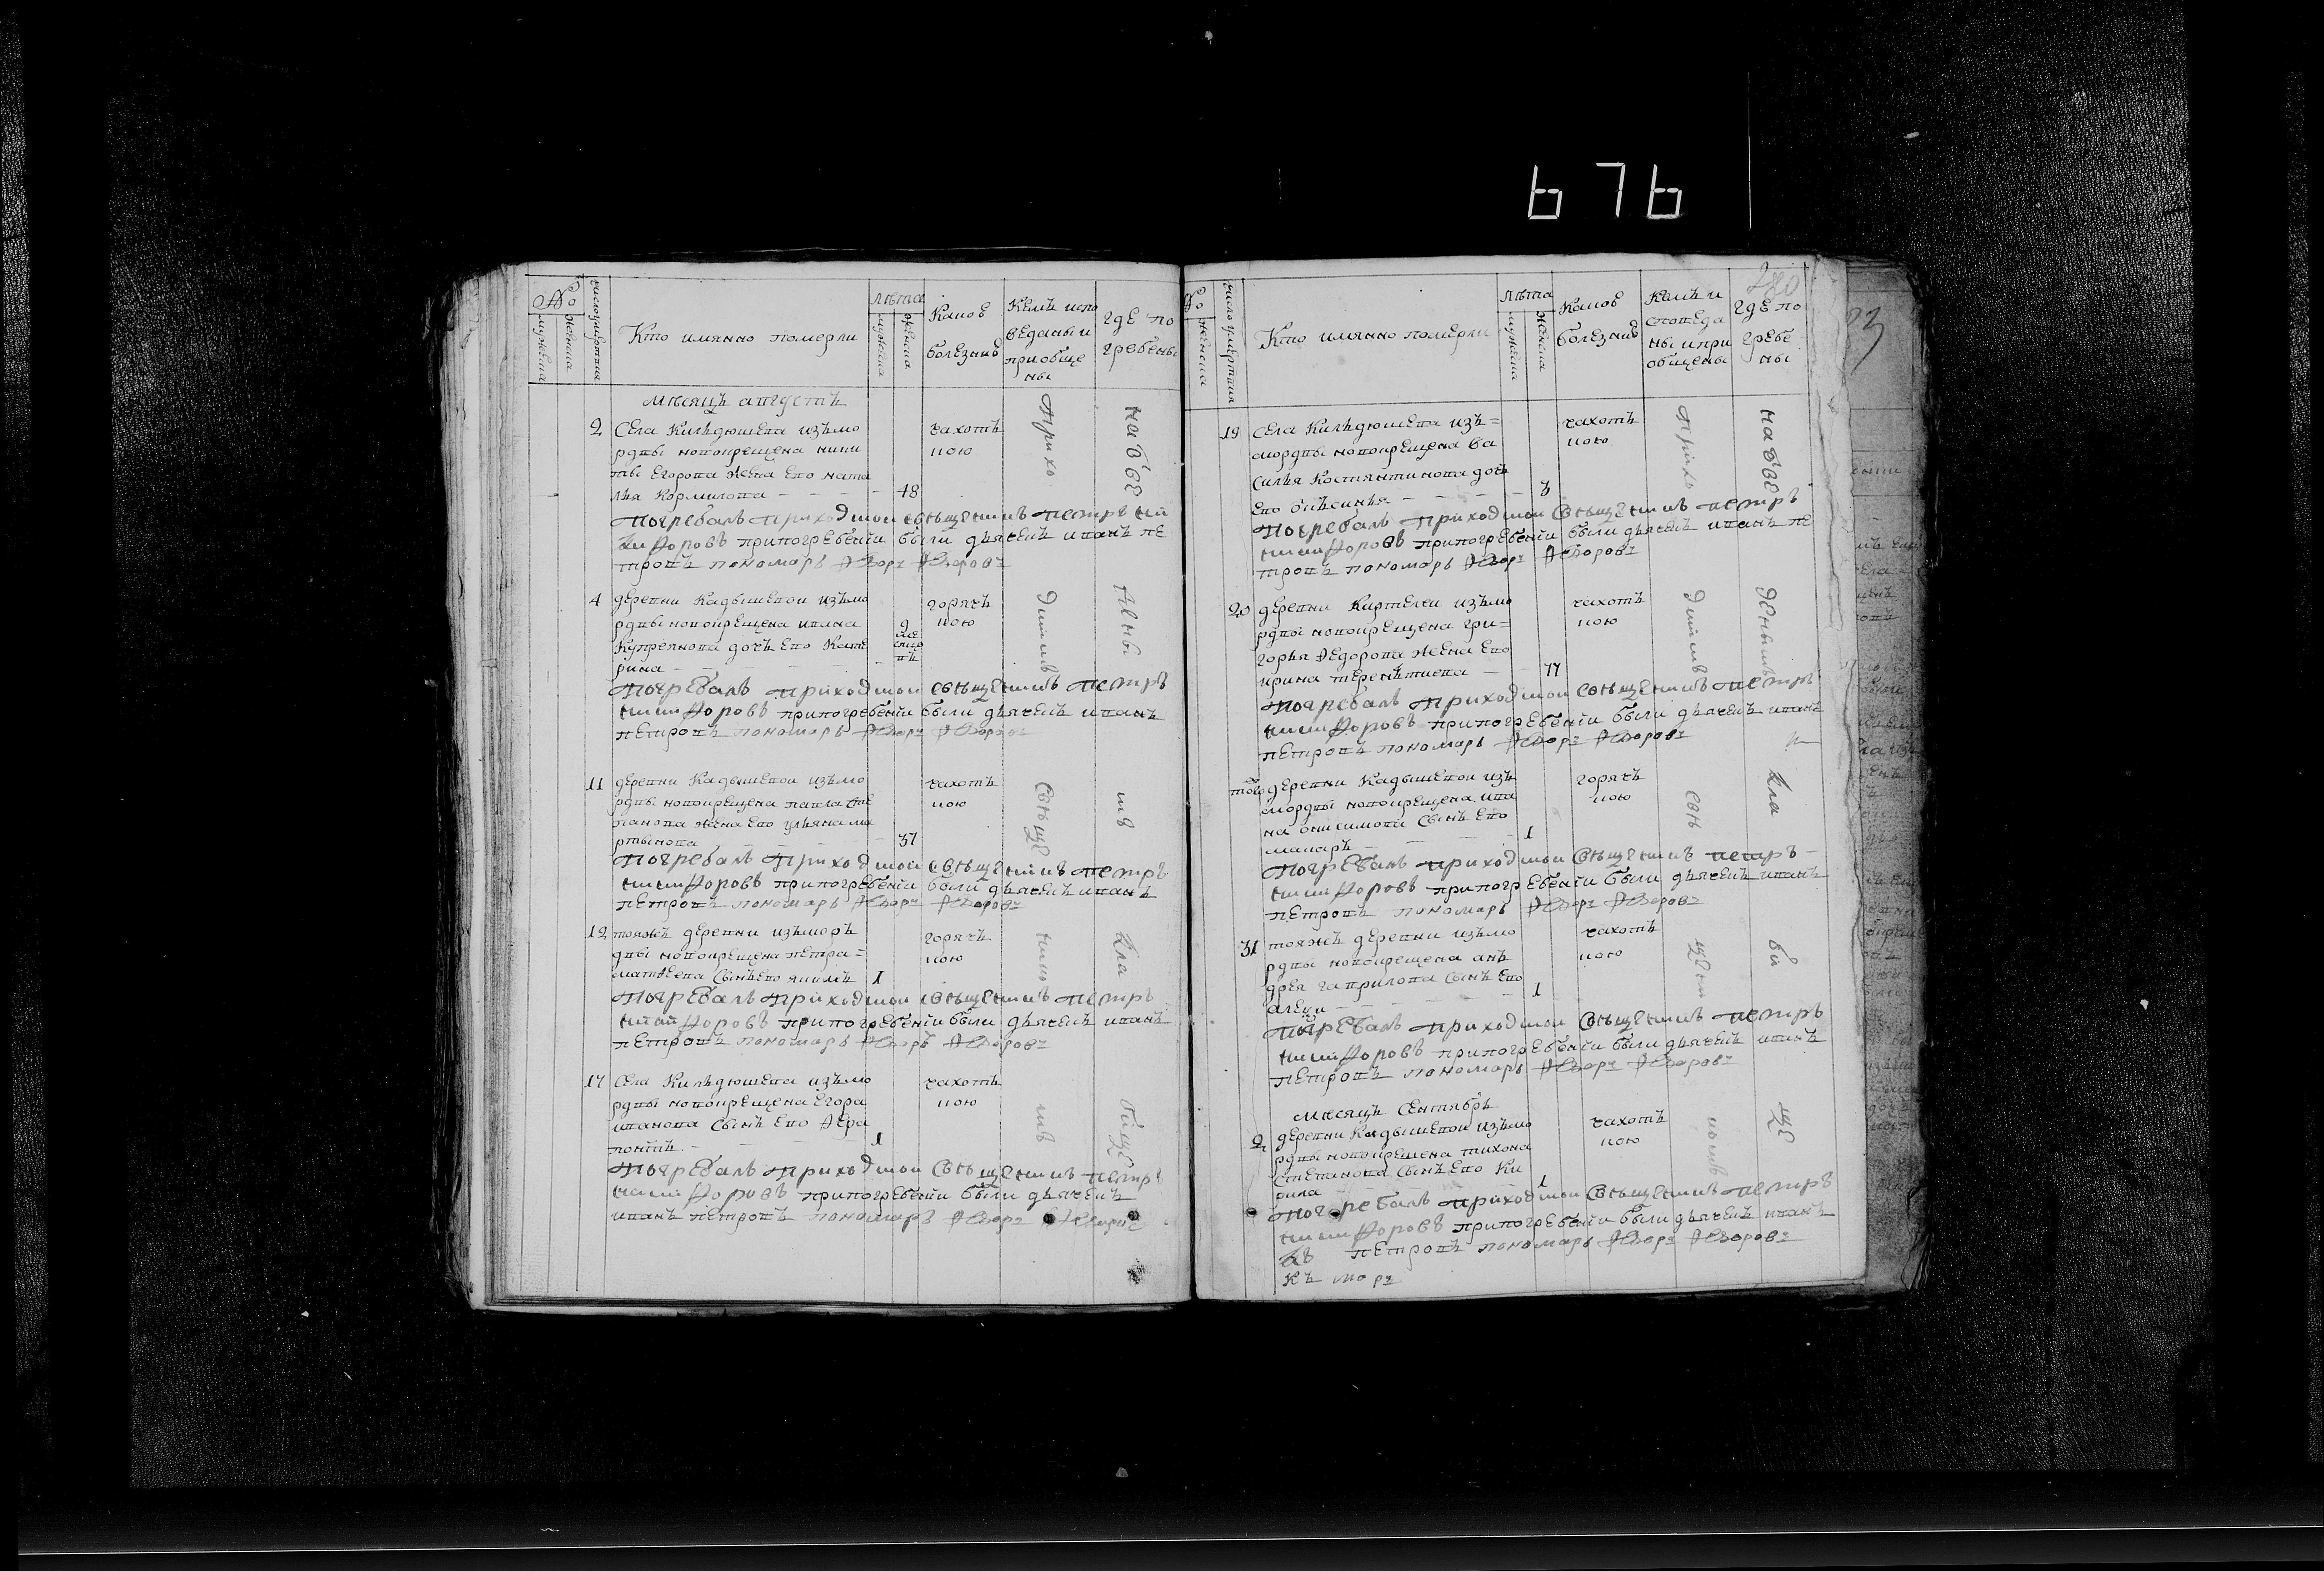 676
№
мужеска
женска
число умертвия
Кто имянно померли
Лѣта
мужеска
женска
Какою
болезнию
Кемъ испо
ведены и
приобще
ны
где по
гребены
Мѣсяцъ августъ
2
Села Кильдюшева изъ мо
рдвы новокрещена ники
ты Егорова жена ево ната
лья Кормилова
48
чахот
кою
Погребалъ приходской священникъ петръ ни
кифоровъ при погребении были дьячекъ иванъ пе
тровъ пономарь Федоръ Федоровъ
4
деревни Кадышевой изъ мо
рдвы новокрещена ивана
Купреянова дочь ево Кате
рина
9
ме
сяцо
въ
горяч
кою
Погребалъ приходской священникъ петръ
никифоровъ при погребении были дьячекъ иванъ
петровъ пономарь Федоръ Федоровъ
11
деревни Кадышевой изъ мо
рдвы новокрещена павла сте
панова жена ево ульяна ма
ртынова
37
чахот
кою
Погребалъ приходской священникъ петръ
никифоровъ при погребении были дьячекъ иванъ
петровъ пономарь Федоръ Федоровъ
12
тояжъ деревни изъ мор
двы новокрещена петра
матвеева сынъ ево якимъ
1
горяч
кою
Погребалъ приходской священникъ петръ
никифоровъ при погребении были дьячекъ иванъ
петровъ пономарь Федоръ Федоровъ
17
Села Кильдюшева изъ мо
рдвы новокрещена Егора
иванова сынъ ево Фера
понтъ
1
чахот
кою
Погребалъ приходской священникъ петръ
никифоровъ при погребении были дьячекъ
иванъ петровъ пономарь Федоръ Федоровъ
Прихо
дскимъ
свяще
нно
комъ
на обе
кновенно
мъ
кла
бище
280
№
женска
число умертвия
Кто имянно померли
Лѣта
мужеска
женска
Какою
болезнию
Кемъ и
споведа
ны и при
общены
где по
гребе
ны
19
Села Кильдюшева изъ
мордвы новокрещена Ва
силья Костянтинова дочь
ево
3
чахот
кою
Погребалъ приходской священникъ петръ
никифоровъ при погребении были дьячекъ иванъ пе
тровъ пономарь Федоръ Федоровъ
20
деревни Киртелей изъ мо
рдвы новокрещена гри
горья Федорова жена ево
ирина терентиева
77
чахот
кою
Погребалъ приходской священникъ петръ
никифоровъ при погребении были дьячекъ иванъ
петровъ пономарь Федоръ Федоровъ
того
деревни Кадышевой изъ
мордвы новокрещена ива
на онисимова сынъ ево
макаръ
1
горяч
кою
Погребалъ приходской священникъ петръ
никифоровъ при погребении были дьячекъ иванъ
петровъ пономарь Федоръ Федоровъ
31
тояжъ деревни изъ мо
рдвы новокрещена ан
дрея гаврилова сынъ ево
алекси
1
чахот
кою
Погребалъ приходской священникъ петръ
никифоровъ при погребении были дьячекъ иванъ
петровъ пономарь Федоръ Федоровъ
Мѣсяцъ Сентябръ
2
деревни Кадышевой изъ мо
рдвы новокрещена тихона
степанова сынъ ево Ки
рила
1
чахот
кою
Погребалъ приходской священникъ петръ
никифоровъ при погребении были дьячекъ иванъ
петровъ пономарь Федоръ Федоровъ
Прихо
дскимъ
свя
щен
никомъ
на обе
кла
би
ще